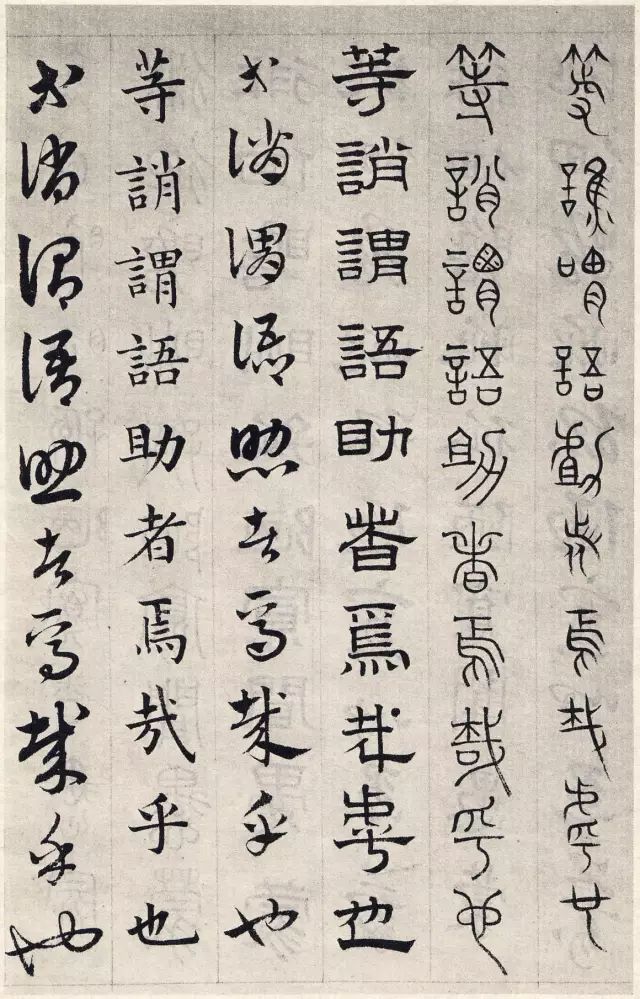 等誚謂語助者焉哉乎也
等誚謂語助者焉哉乎也
等誚謂語助者焉哉乎也
等誚謂語助者焉哉乎也
等誚謂語助者焉哉乎也
等誚謂語助者焉哉乎也